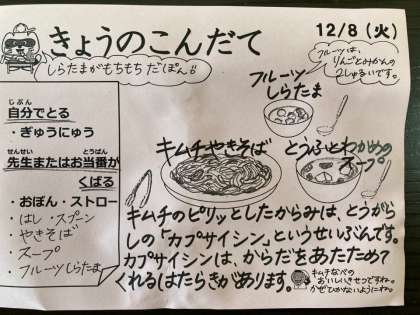 きょうのこんだて
12/8（火）
しらたまがもちもちだぽん
フルーツは、
りんごとみかんの
2しゅるいです。
フルーツ
しらたま
キムチやきそば
とうふとわかめの
スープ
じぶん
自分でとる
・ぎゅうにゅう
せんせい とうばん
先生またはお当番が
くばる
・おぼん・ストロー
・はし・スプーン
・やきそば
・スープ
・フルーツしらたま
キムチのピリッとしたからみは、とうがら
しの「カプサイシン」というせいぶんです。
カプサイシンは、からだをあたためて
くれるはたらきがあります。
キムチなべの
おいしいきせつですね。
かぜひかないようにね。